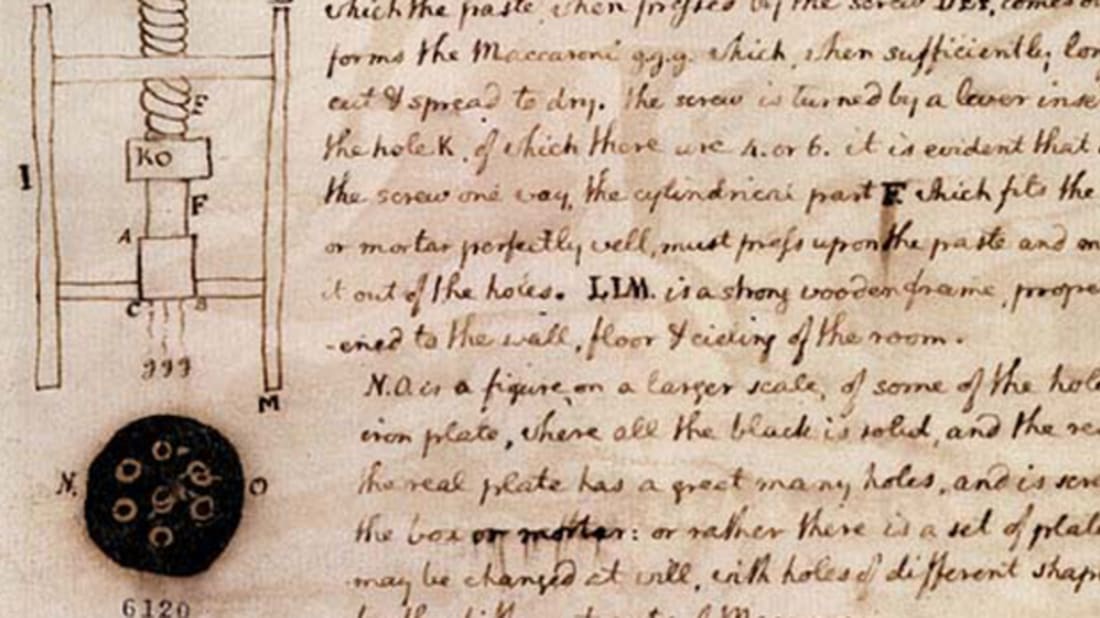 which the paste, when pressed by the screw DEF, comes o
forms the Maccaroni g.g.g. which, when sufficiently lon
cut & spread to dry. the screw is turned by a lever inse
the hole K. of which there are 4. or 6. it is evident that
the screw one way, the cylindrical part F. which fits the
or mortar perfectly well, must press upon the paste and m
it out of the holes. LLM. is a strong wooden frame, prope
-ened to the wall, floor & cieling of the room.
N.O. is a figure, on a larger scale, of some of the hole
iron plate, where all the black is solid, and the re
the real plate has a great many holes, and is scre
the box or mortar: or rather there is a set of plate
may be changed at will, with holes of different shap
E
KO
I
F
A
C B
ggg
M
N. O
6120